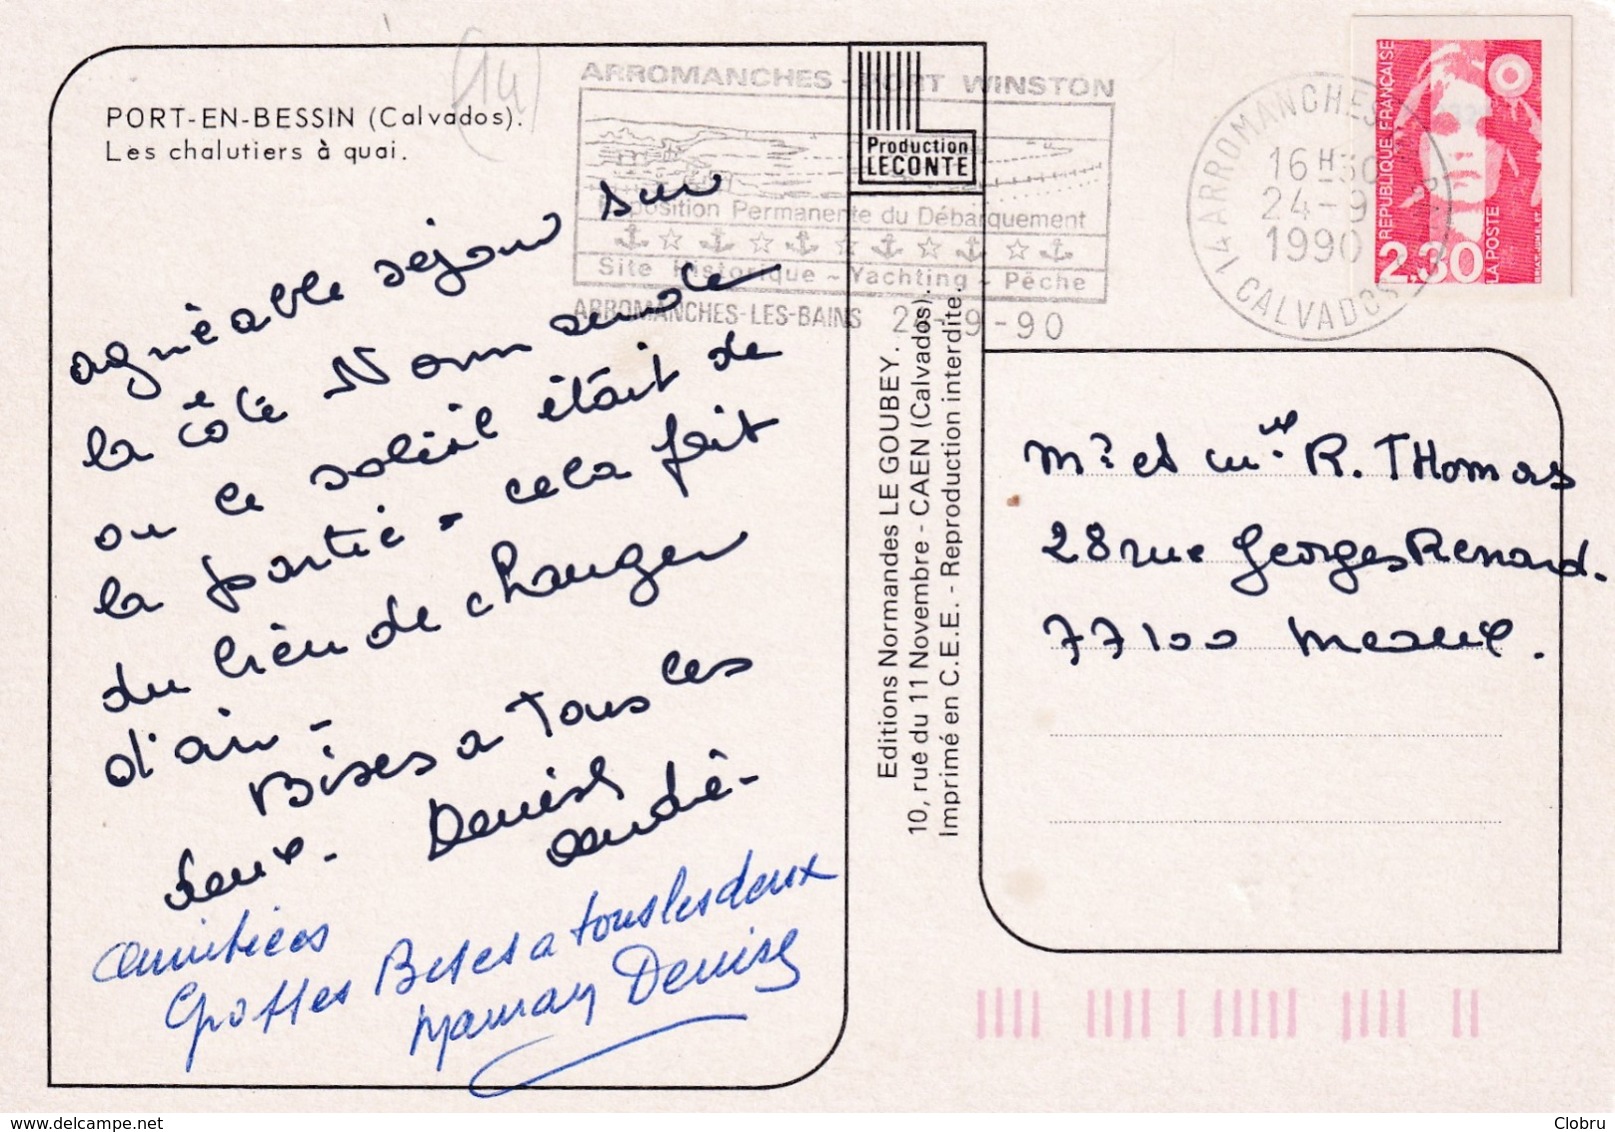 (14)
PORT-EN-BESSIN (Calvados).
Les chalutiers à quai.
agréable séjour sur
la côte Normande
ou le soleil était de
la partie - cela fait
du bien de changer
d'air -
Bises a tous les
deux. Denise
André -
amitiées
Grosses Bises a tous les deux
Maman Denise
ARROMANCHES - PORT WINSTON
Exposition Permanente du Débarquement
Site Historique ~ Yachting ~ Pêche
ARROMANCHES-LES-BAINS 2 -9-90
Production
LECONTE
Editions Normandes LE GOUBEY.
10, rue du 11 Novembre - CAEN (Calvados).
Imprimé en C.E.E. - Reproduction interdite.
14 ARROMANCHES
16 H 30
24-9
1990
CALVADOS
REPUBLIQUE FRANÇAISE
2,30
LA POSTE
Mr et Mme R. THomas
28 rue Georges Renard.
77100 Meaux.
Clobru